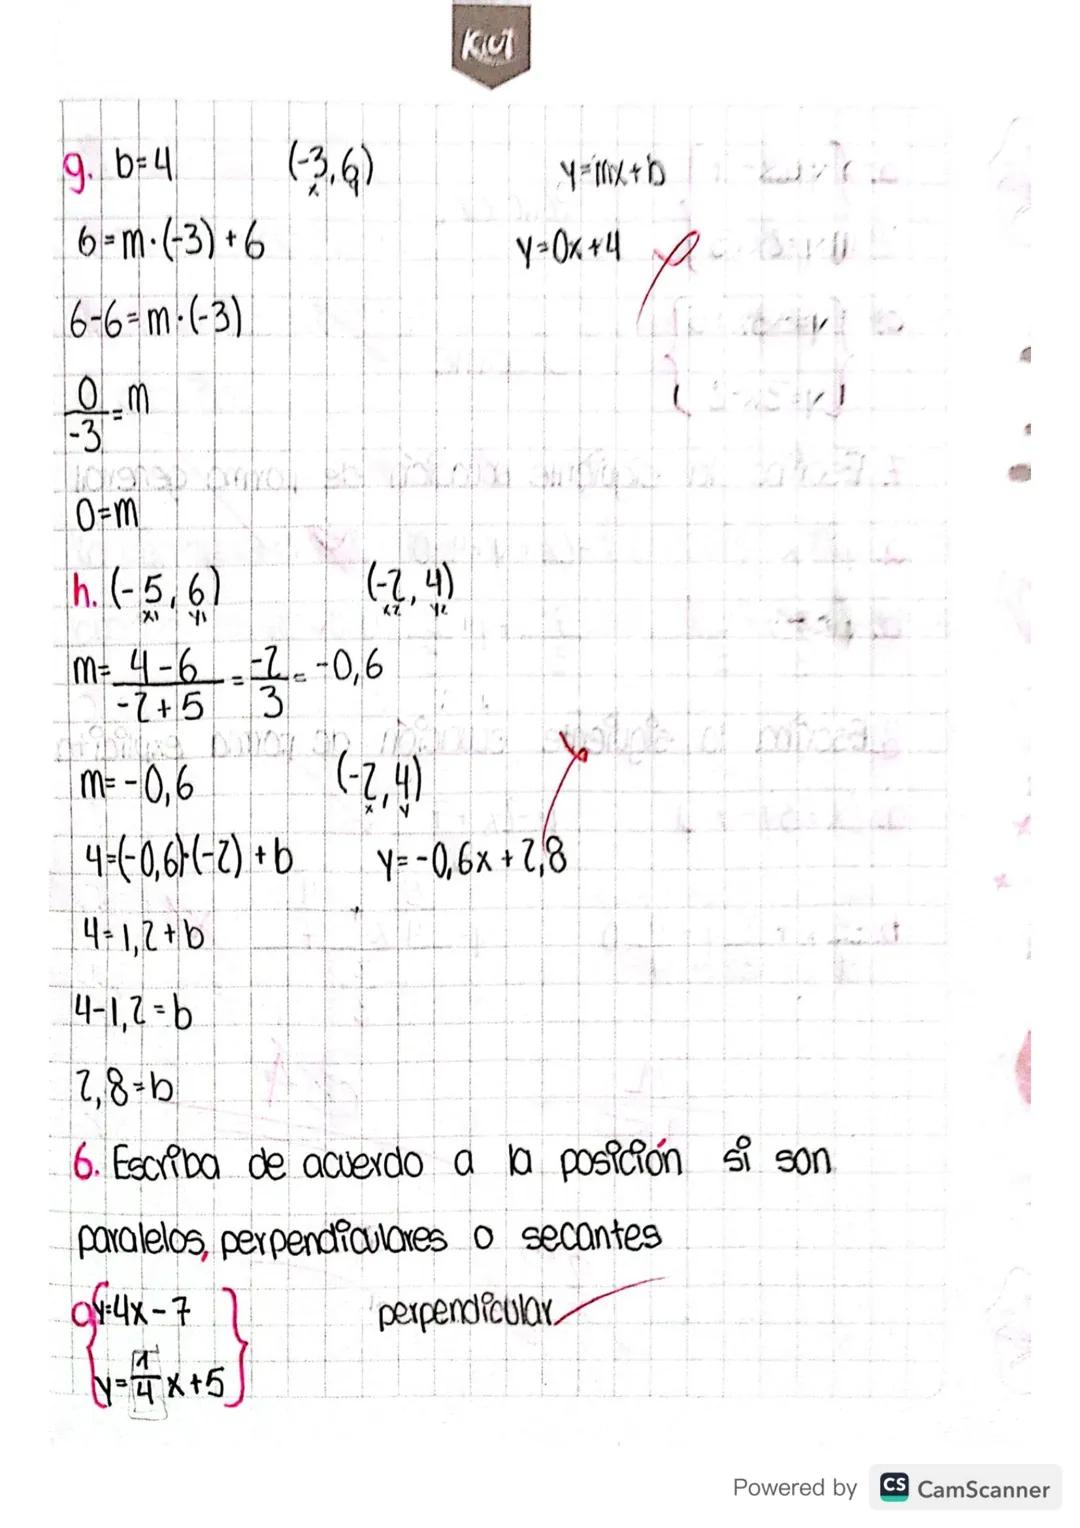 Kiut
g. b=4 (-3,6) y=mx+b
x y
6=m·(-3)+6 y=0x+4
6-6=m·(-3)
0/-3=m
0=m
h. (-5,6) (-2,4)
x1 y1 x2 y2
m= 4-6/-2+5 = -2/3 = -0,6
m=-0,6 (-2,4)
x y
4=(-0,6)·(-2)+b y=-0,6x+2,8
4=1,2+b
4-1,2=b
2,8=b
6. Escriba de acuerdo a la posición si son
paralelos, perpendiculares o secantes
a{y=4x-7 perpendicular
y=1/4 x+5}
Powered by CS CamScanner